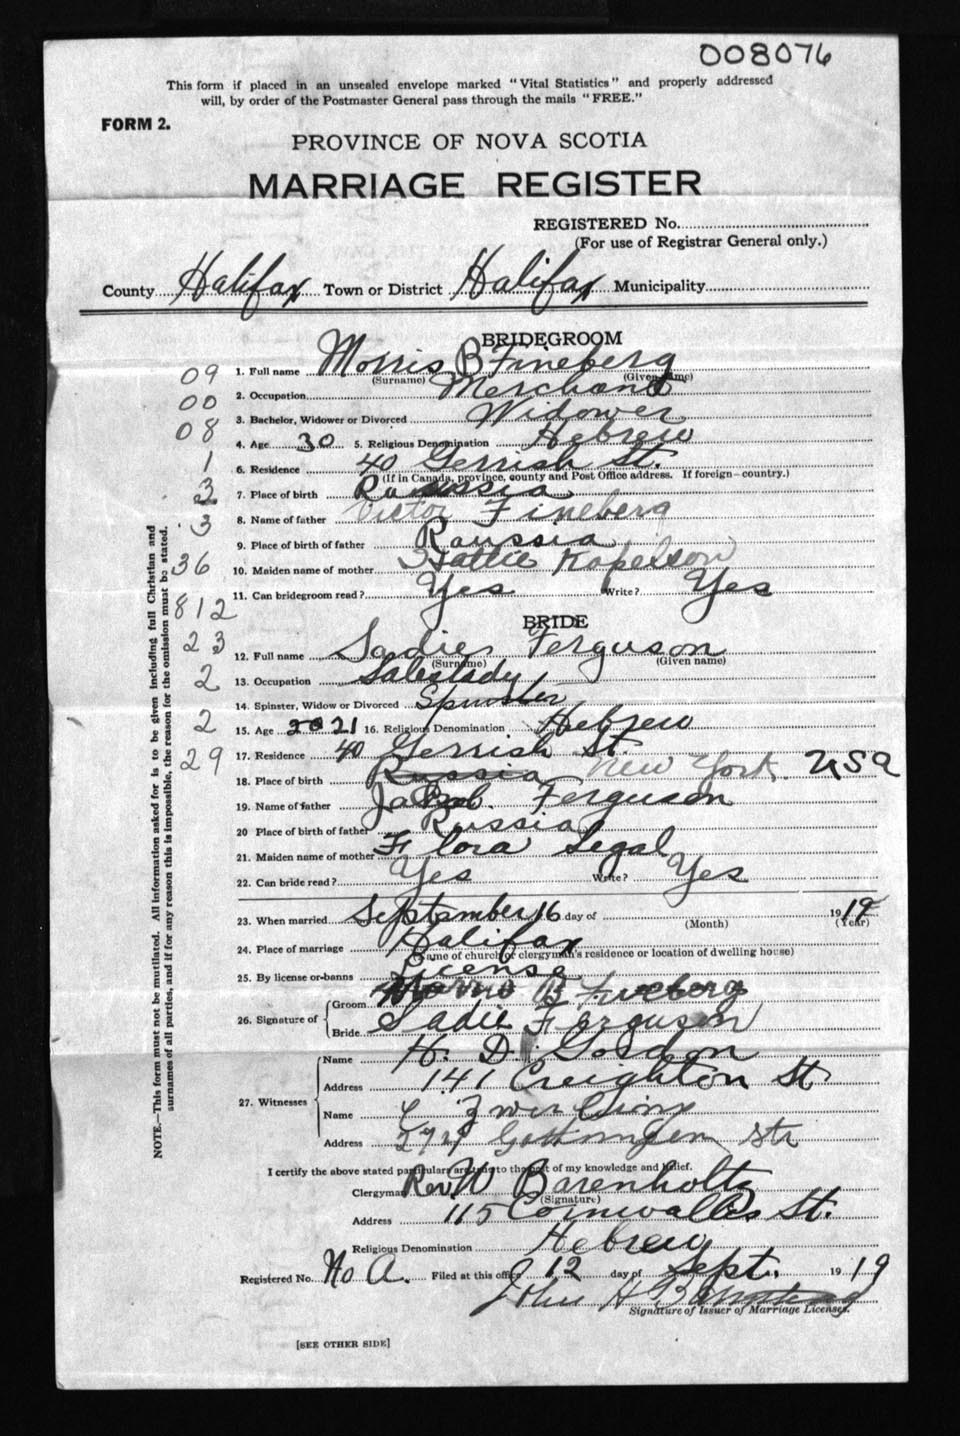 008076
This form if placed in an unsealed envelope marked "Vital Statistics" and properly addressed
will, by order of the Postmaster General pass through the mails "FREE."
FORM 2.
PROVINCE OF NOVA SCOTIA
MARRIAGE REGISTER
REGISTERED No.
(For use of Registrar General only.)
County Halifax Town or District Halifax Municipality
BRIDEGROOM
09 1. Full name Morris B Fineberg
(Surname) (Given name)
00 2. Occupation Merchant
08 3. Bachelor, Widower or Divorced Widower
4. Age 30 5. Religious Denomination Hebrew
1 6. Residence 40 Gerrish St.
(If in Canada, province, county and Post Office address. If foreign-country.)
3 7. Place of birth Russia
8. Name of father Victor Fineberg
3 9. Place of birth of father Russia
36 10. Maiden name of mother Hattie
11. Can bridegroom read? Yes Write? Yes
812
BRIDE
23 12. Full name Sadie Ferguson
(Surname) (Given name)
2 13. Occupation Saleslady
14. Spinster, Widow or Divorced Spinster
2 15. Age 20 21 16. Religious Denomination Hebrew
29 17. Residence 40 Gerrish St.
18. Place of birth Russia New York. USA
19. Name of father Jacob Ferguson
20 Place of birth of father Russia
21. Maiden name of mother Flora Segal
22. Can bride read? Yes Write? Yes
23. When married September 16 day of 1919
(Month) (Year)
24. Place of marriage Halifax
(Name of church or clergyman's residence or location of dwelling house)
25. By license or banns License
26. Signature of Groom Morris B Fineberg
Bride Sadie Ferguson
27. Witnesses Name H. D. Gordon
Address 141 Creighton St
Name
Address 274 Gottingen Str
I certify the above stated particulars are true to the best of my knowledge and belief.
Clergyman Rev. W Barenholtz
(Signature)
Address 115 Cornwallis St.
Religious Denomination Hebrew
Registered No. No A. Filed at this office 12 day of Sept. 1919
John H
Signature of Issuer of Marriage Licenses.
[SEE OTHER SIDE]
NOTE.—This form must not be mutilated. All information asked for is to be given including full Christian and
surnames of all parties, and if for any reason this is impossible, the reason for the omission must be stated.